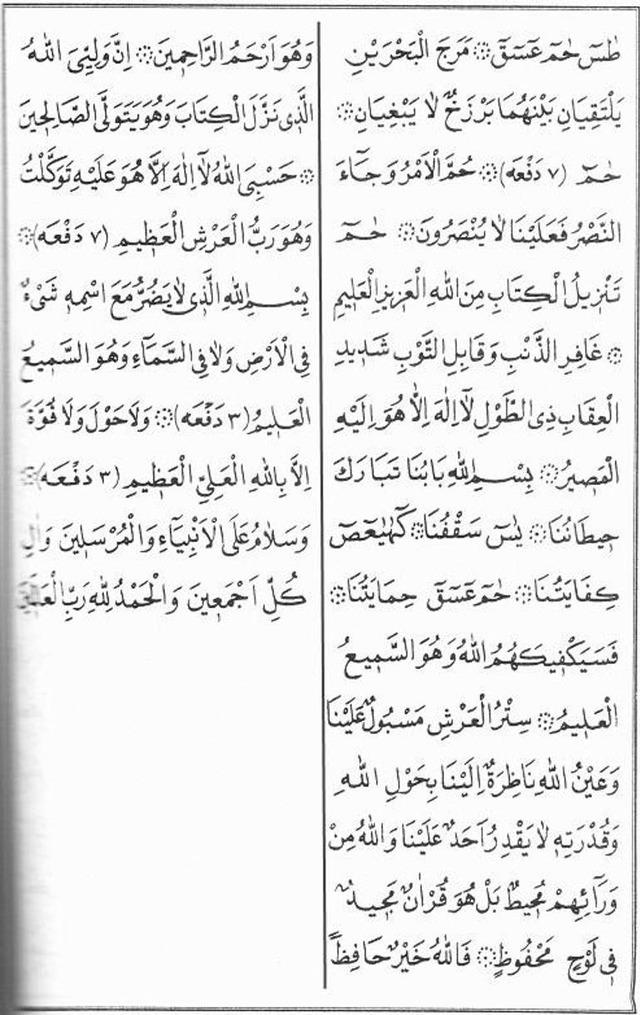 طٰسٓ حٰمٓ عٓسٓقٓ ۞ مَرَجَ الْبَحْرَيْنِ
يَلْتَقِيَانِ بَيْنَهُمَا بَرْزَخٌ لَا يَبْغِيَانِ ۞
حٰمٓ (٧ دَفْعَه) ۞ حُمَّ الْاَمْرُ وَجَٓاءَ
النَّصْرُ فَعَلَيْنَا لَا يُنْصَرُونَ ۞ حٰمٓ
تَنْزِيلُ الْكِتَابِ مِنَ اللهِ الْعَزِيزِ الْعَلِيمِ
۞ غَافِرِ الذَّنْبِ وَقَابِلِ التَّوْبِ شَدِيدِ
الْعِقَابِ ذِى الطَّوْلِ لَٓا اِلٰهَ اِلَّا هُوَ اِلَيْهِ
الْمَصِيرُ ۞ بِسْمِ اللهِ بَابُنَا تَبَارَكَ
حِيطَانُنَا ۞ يٰسٓ سَقْفُنَا ۞ كٓهٰيٰعٓصٓ
كِفَايَتُنَا ۞ حٰمٓ عٓسٓقٓ حِمَايَتُنَا ۞
فَسَيَكْفِيكَهُمُ اللهُ وَهُوَ السَّمِيعُ
الْعَلِيمُ ۞ سِتْرُ الْعَرْشِ مَسْبُولٌ عَلَيْنَا
وَعَيْنُ اللهِ نَاظِرَةٌ اِلَيْنَا بِحَوْلِ اللهِ
وَقُدْرَتِهِ لَا يَقْدِرُ اَحَدٌ عَلَيْنَا وَاللهُ مِنْ
وَرَٓائِهِمْ مُحِيطٌ بَلْ هُوَ قُرْاٰنٌ مَجِيدٌ
فِى لَوْحٍ مَحْفُوظٍ ۞ فَاللهُ خَيْرٌ حَافِظًا
وَهُوَ اَرْحَمُ الرَّاحِمِينَ ۞ اِنَّ وَلِيِّىَ اللهُ
الَّذِى نَزَّلَ الْكِتَابَ وَهُوَ يَتَوَلَّى الصَّالِحِينَ
۞ حَسْبِىَ اللهُ لَٓا اِلٰهَ اِلَّا هُوَ عَلَيْهِ تَوَكَّلْتُ
وَهُوَ رَبُّ الْعَرْشِ الْعَظِيمِ (٧ دَفْعَه) ۞
بِسْمِ اللهِ الَّذِى لَا يَضُرُّ مَعَ اسْمِهِ شَىْءٌ
فِى الْاَرْضِ وَلَا فِى السَّمَٓاءِ وَهُوَ السَّمِيعُ
الْعَلِيمُ (٣ دَفْعَه) ۞ وَلَا حَوْلَ وَلَا قُوَّةَ
اِلَّا بِاللهِ الْعَلِىِّ الْعَظِيمِ (٣ دَفْعَه) ۞
وَسَلَامٌ عَلَى الْاَنْبِيَٓاءِ وَالْمُرْسَلِينَ وَاٰلِ
كُلٍّ اَجْمَعِينَ وَالْحَمْدُ لِلّٰهِ رَبِّ الْعَالَمِينَ